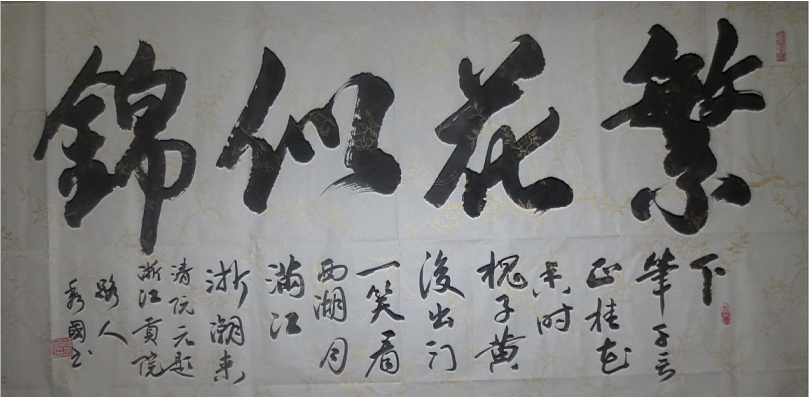 繁花似錦
下
筆千言
正桂花
香时
槐子黄
後出门
一笑看
西湖月
滿江
浙潮來
清阮元题
浙江貢院
路人
秀國书